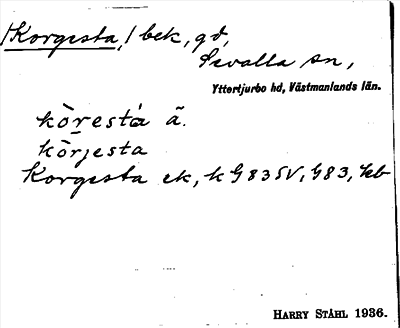 /Korgesta,/ bek, gd,
Svalla sn,
Yttertjurbo hd, Västmanlands län.
kòrestà ä.
kòrjesta
Korgesta ek, k G 83 SV, G 83, kb
HARRY STÅHL 1936.